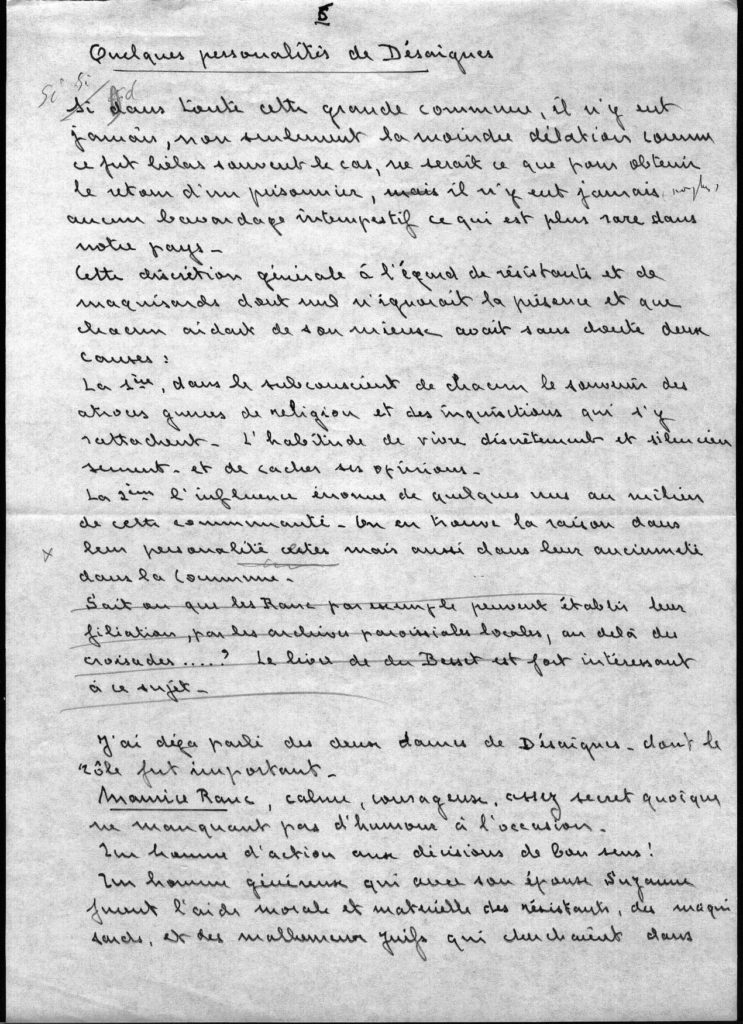 5
Quelques personalités de Désaignes
Si Si d
Si dans toute cette grande commune, il n'y eut
jamais, non seulement la moindre délation comme
ce fut hélas souvent le cas, ne serait ce que pour obtenir
le retour d'un prisonnier, mais il n'y eut jamais
aucun bavardage intempestif ce qui est plus rare dans
notre pays -
Cette discrétion générale à l'égard de résistants et de
maquisards dont nul n'ignorait la présence et que
chacun aidait de son mieux avait sans doute deux
causes :
La 1ère, dans le subconscient de chacun le souvenir des
atroces guerres de religion et des inquisitions qui s'y
rattachent - L'habitude de vivre discrètement et silencieu
sement - et de cacher ses opinions -
La 2ème l'influence énorme de quelques uns au milieu
de cette communauté - On en trouve la raison dans
x leur personalité certes mais aussi dans leur ancienneté
dans la Commune -
Sait on que les Ranc par exemple peuvent établir leur
filiation, par les archives paroissiales locales, au delà des
croisades .....? Le livre de du Besset est fort intéressant
à ce sujet -
J'ai déja parlé des deux dames de Désaignes - dont le
rôle fut important -
Maurice Ranc, calme, courageux, assez secret quoique
ne manquant pas d'humour à l'occasion -
Un homme d'action aux décisions de bon sens !
Un homme généreux qui avec son épouse Suzanne
furent l'aide morale et matérielle des résistants, des maqui
sards, et des malheureux juifs qui cherchaient dans